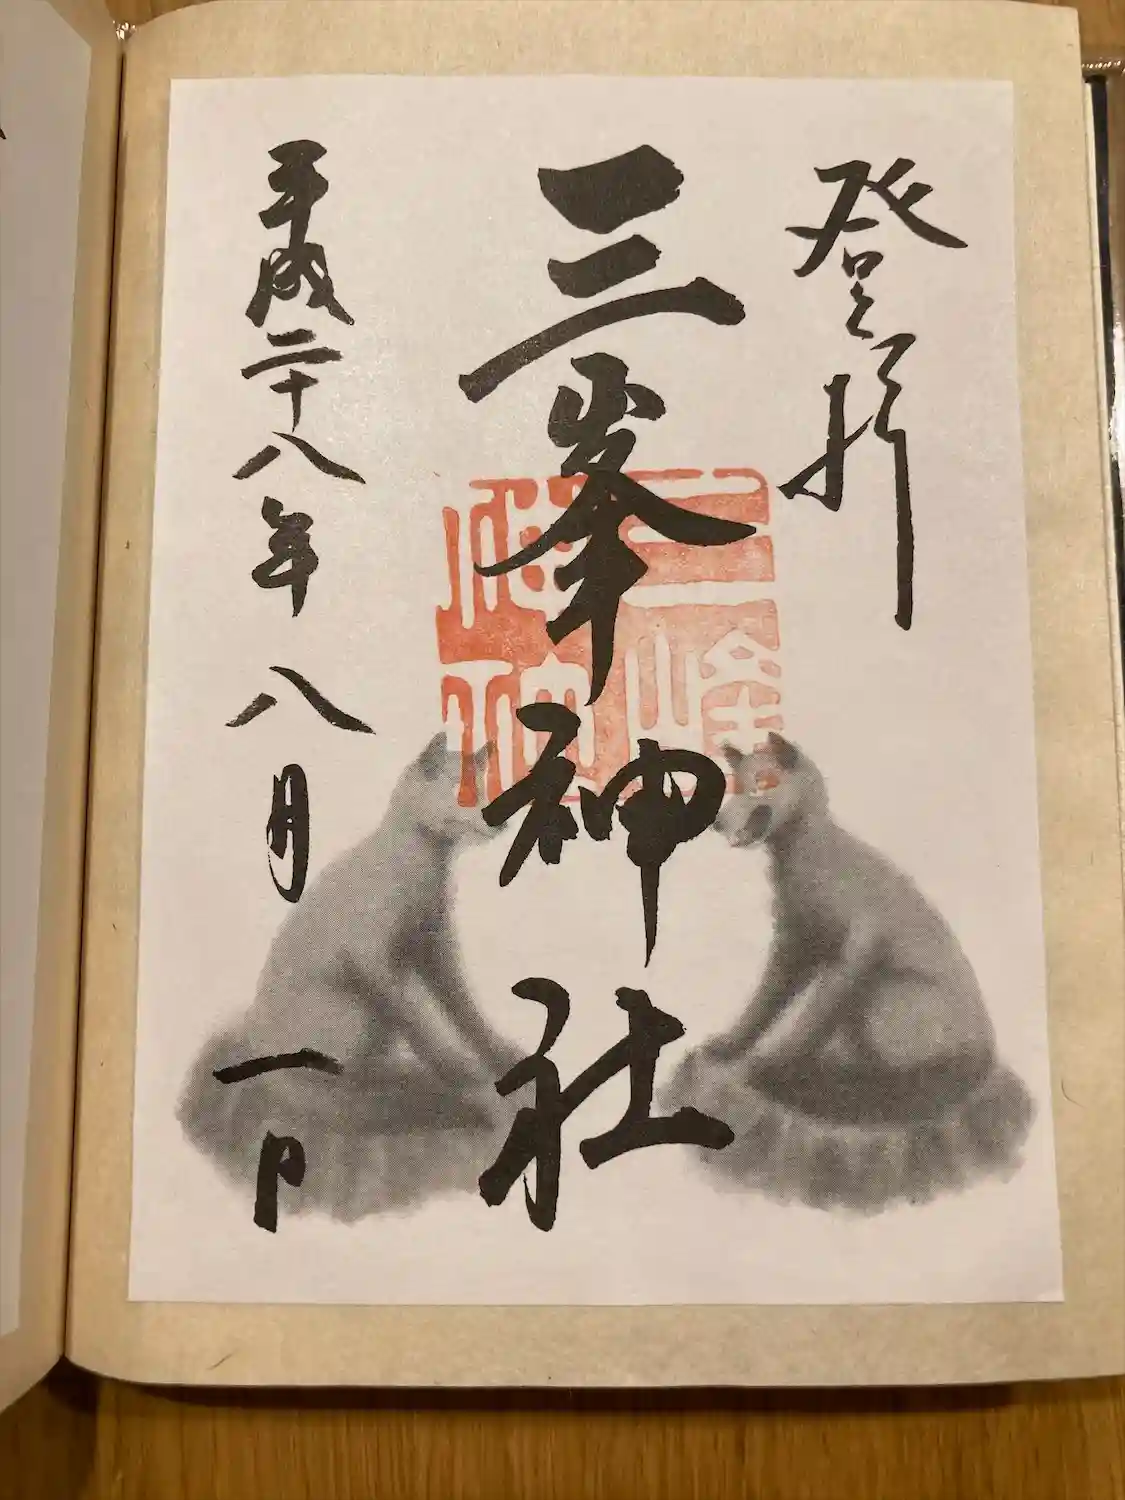 登拝
三峯神社
三峰
神社
平成二十八年八月一日